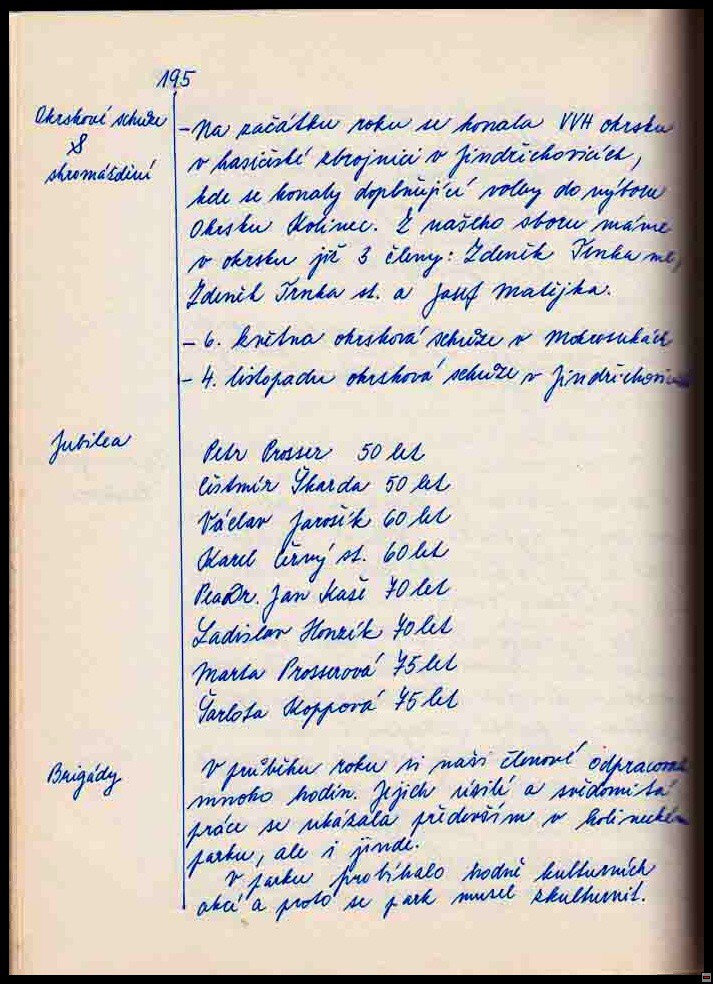 195
Okrskové schůze
&
shromáždění
- Na začátku roku se konala VVH okrsku
v hasičské zbrojnici v Jindřichovicích,
kde se konaly doplňující volby do výboru
Okrsku Kolinec. Z našeho sboru máme
v okrsku již 3 členy: Zdeněk Trnka ml,
Zdeněk Trnka st. a Josef Matějka.
- 6. května okrsková schůze v Mokrosukách
- 4. listopadu okrsková schůze v Jindřichovicích
Jubilea
Petr Prosser 50 let
Čestmír Škarda 50 let
Václav Jarošík 60 let
Karel Černý st. 60 let
PeaDr. Jan Kaše 70 let
Ladislav Honzík 70 let
Marta Prosserová 75 let
Šarlota Koppová 75 let
Brigády
V průběhu roku si naši členové odpracovali
mnoho hodin. Jejich úsilí a svědomitá
práce se ukázala především v kolineckém
parku, ale i jinde.
V parku probíhalo hodně kulturních
akcí a proto se park musel zkulturnit.